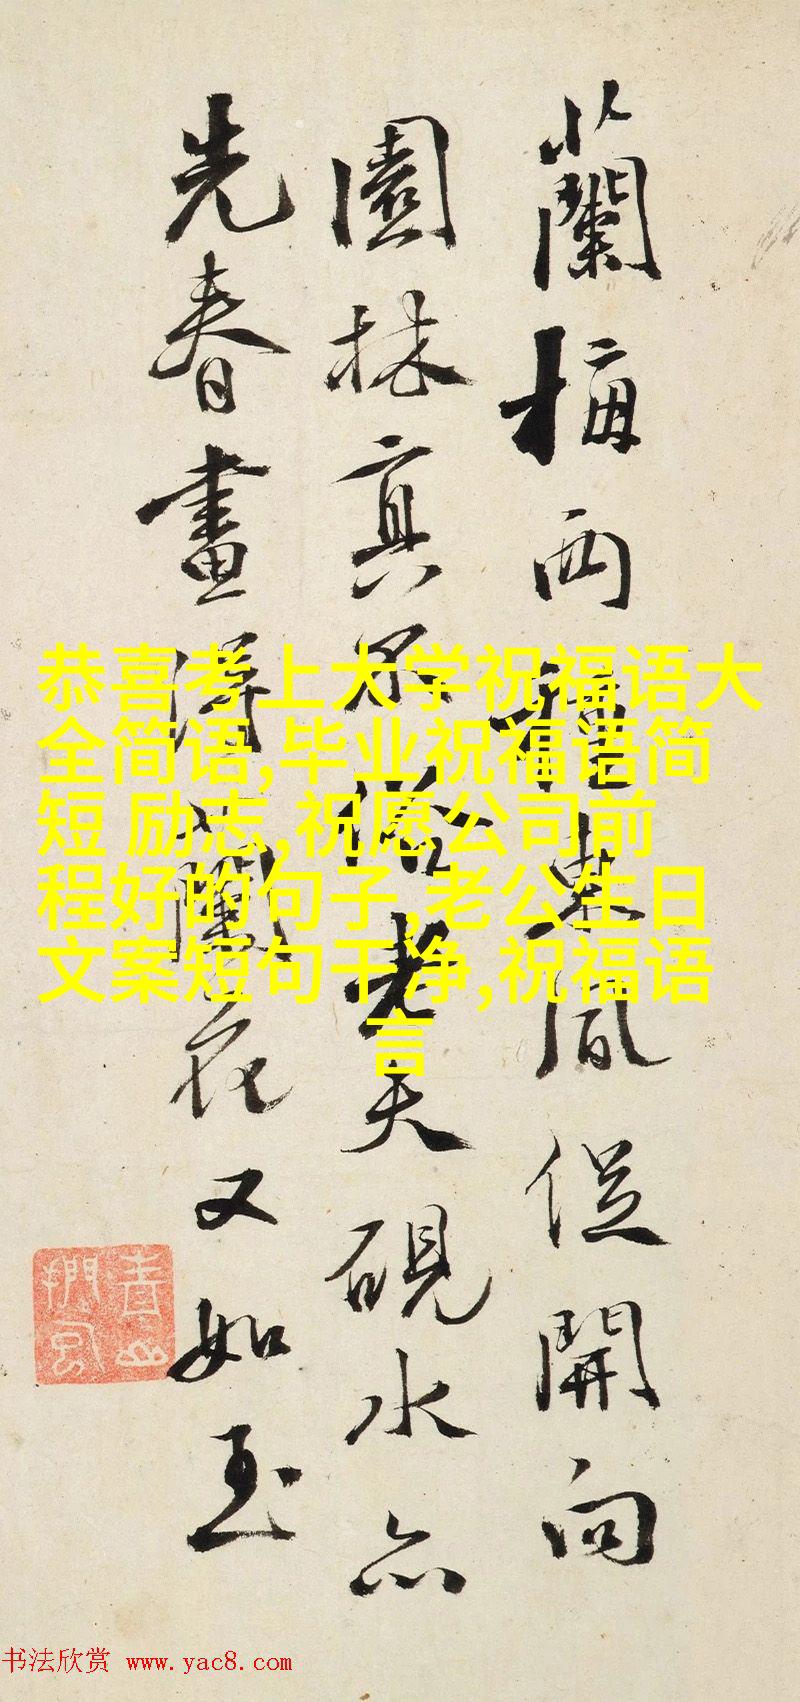 蘭梅两種東風從開向
園林真不俗老夫硯水亦
先春畫得蘭花又如玉
恭喜考上大学祝福语大
全简语,毕业祝福语简
短 励志,祝愿公司前
程好的句子,老公生日
文案短句干净,祝福语
言
书法欣赏 www.yac8.com